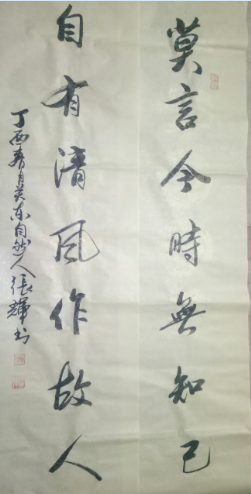 莫言今時無知己
自有清风作故人
丁酉春月吴东自然人張輝书